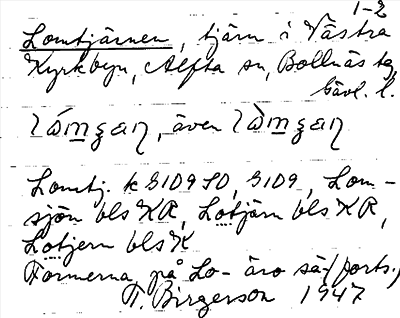 1-2
Lomtjärnen, tjärn i Västra
Kyrkbyn, Alfta sn, Bollnäs tg
Gävl. l.
även
Lomtj. k G1D9 SO, G1D9, Lom-
sjön bls KR, Lotjärn bls KR,
Lotjern bls K
Formerna på Lo- äro sä- (forts.)
T. Birgerson 1947